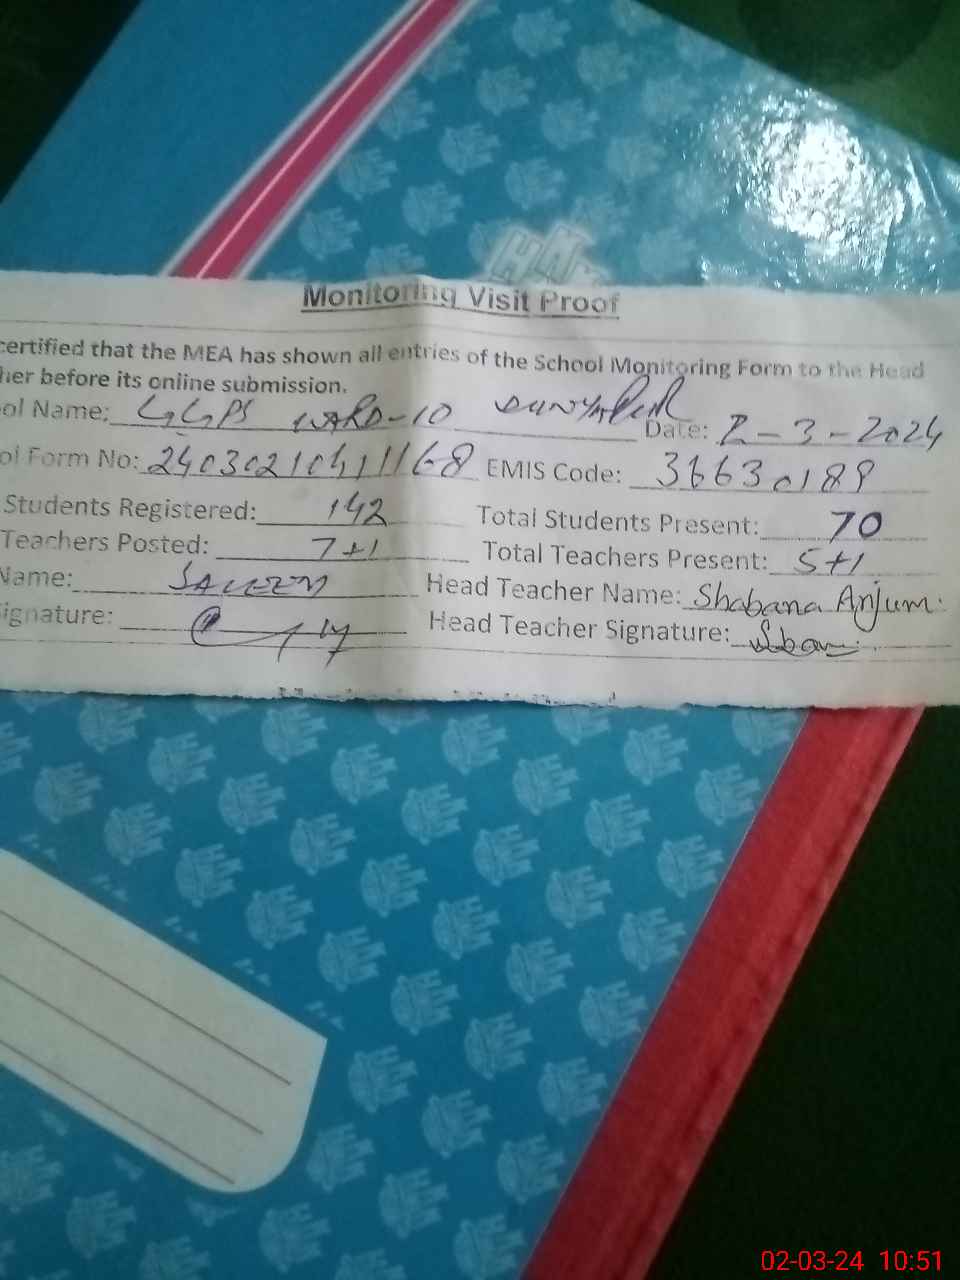 Monitoring Visit Proof
certified that the MEA has shown all entries of the School Monitoring Form to the Head
her before its online submission.
ol Name: GGPS WARD-10 DUNYAPUR Date: 2-3-2024
ol Form No: EMIS Code: 36630189
Students Registered: 142 Total Students Present: 70
Teachers Posted: 7+1 Total Teachers Present: 5+1
Name: SALEEM Head Teacher Name: Shabana Anjum.
ignature: Head Teacher Signature:
02-03-24 10:51